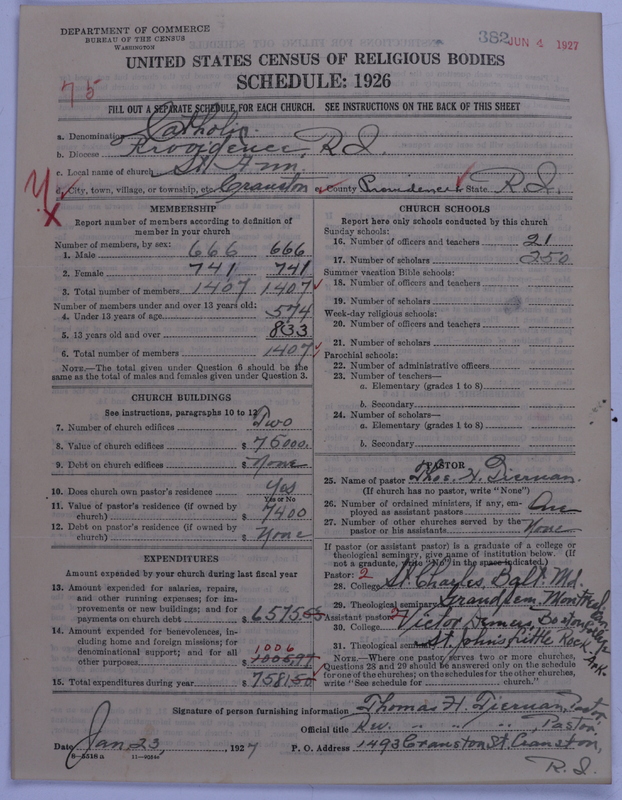 DEPARTMENT OF COMMERCE
BUREAU OF THE CENSUS
WASHINGTON
382 JUN 4 1927
UNITED STATES CENSUS OF RELIGIOUS BODIES
SCHEDULE: 1926
75
FILL OUT A SEPARATE SCHEDULE FOR EACH CHURCH. SEE INSTRUCTIONS ON THE BACK OF THIS SHEET
a. Denomination Catholic.
b. Diocese Providence, R.I.
c. Local name of church St. Ann
d. City, town, village, or township, etc. Cranston e. County Providence f. State R.I.
MEMBERSHIP
Report number of members according to definition of
member in your church
Number of members, by sex:
1. Male 666 666
2. Female 741 741
3. Total number of members 1407 1407
Number of members under and over 13 years old:
4. Under 13 years of age 574
5. 13 years old and over 833
6. Total number of members 1407
NOTE.—The total given under Question 6 should be the
same as the total of males and females given under Question 3.
CHURCH BUILDINGS
See instructions, paragraphs 10 to 13
7. Number of church edifices Two
8. Value of church edifices $ 75000.
9. Debt on church edifices $ None
10. Does church own pastor's residence Yes
Yes or No
11. Value of pastor's residence (if owned by
church) $ 7400
12. Debt on pastor's residence (if owned by
church) $ None
EXPENDITURES
Amount expended by your church during last fiscal year
13. Amount expended for salaries, repairs,
and other running expenses; for im-
provements or new buildings; and for
payments on church debt $ 6575
14. Amount expended for benevolences, in-
cluding home and foreign missions; for
denominational support; and for all
other purposes $ 1006
15. Total expenditures during year $ 7581
CHURCH SCHOOLS
Report here only schools conducted by this church
Sunday schools:
16. Number of officers and teachers 21
17. Number of scholars 350
Summer vacation Bible schools:
18. Number of officers and teachers
19. Number of scholars
Week-day religious schools:
20. Number of officers and teachers
21. Number of scholars
Parochial schools:
22. Number of administrative officers
23. Number of teachers—
a. Elementary (grades 1 to 8)
b. Secondary
24. Number of scholars—
a. Elementary (grades 1 to 8)
b. Secondary
PASTOR
25. Name of pastor Thos. H. Tiernan.
(If church has no pastor, write "None")
26. Number of ordained ministers, if any, em-
ployed as assistant pastors One
27. Number of other churches served by the
pastor or his assistants None
If pastor (or assistant pastor) is a graduate of a college or
theological seminary, give name of institution below. (If
not a graduate, write "No" in the space indicated.)
Pastor: 2
28. College St. Charles, Balt. Md.
29. Theological seminary Grand Sem. Montreal
Assistant pastor: Can
30. College Victor Demers,
31. Theological seminary St. Johns Little Rock Ark.
NOTE.—Where one pastor serves two or more churches,
Questions 28 and 29 should be answered only on the schedule
for one of the churches; on the schedules for the other churches,
write "See schedule for church."
Signature of person furnishing information Thomas H. Tiernan, Pastor
Official title Rev. " " " , Pastor.
Date Jan. 23, 1927 P. O. Address 1493 Cranston St. Cranston,
8—5518a 11—9054
R.I.